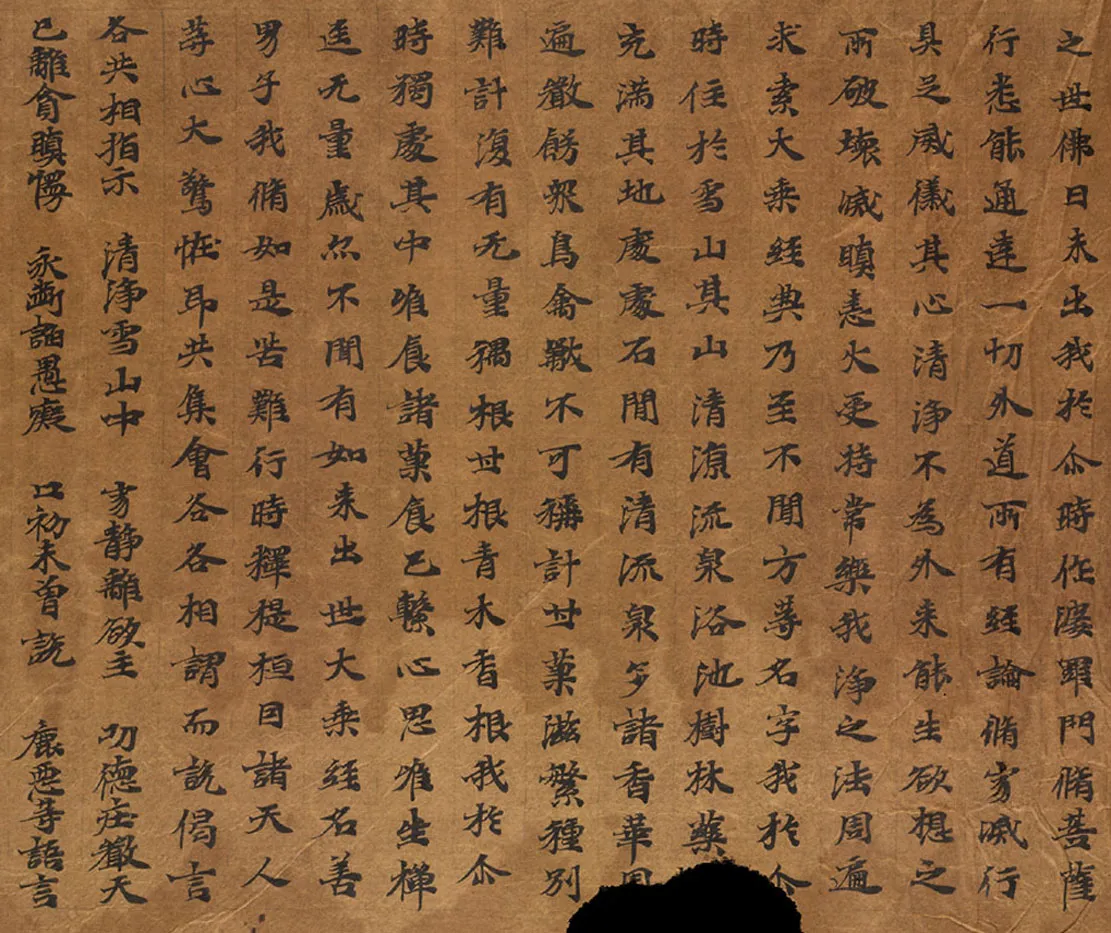 之世佛日未出我於尒時作婆羅門脩菩薩
行悉能通達一切外道所有經論脩寂滅行
具足威儀其心清淨不為外来能生欲想之
所破壞滅瞋恚火受持常樂我淨之法周遍
求索大乘經典乃至不聞方等名字我於尒
時住於雪山其山清涼流泉浴池樹林藥
充滿其地處處石間有清流泉多諸香華周
遍嚴飾衆鳥禽獸不可稱計甘菓滋繁種別
難計復有无量藕根甘根青木香根我於尒
時獨處其中唯食諸菓食已繫心思惟坐禪
逕无量歲亦不聞有如来出世大乘經名善
男子我脩如是苦難行時釋提桓因諸天人
等心大驚恠即共集會各各相謂而說偈言
各共相指示 清淨雪山中 寂靜離欲主 功德莊嚴天
已離貪瞋慢 永斷諂愚癡 口初未曾說 麁惡等語言